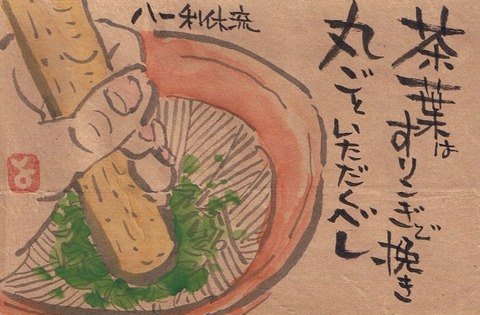 茶葉はすりこぎで挽き
丸ごといただくべし
八一利休流